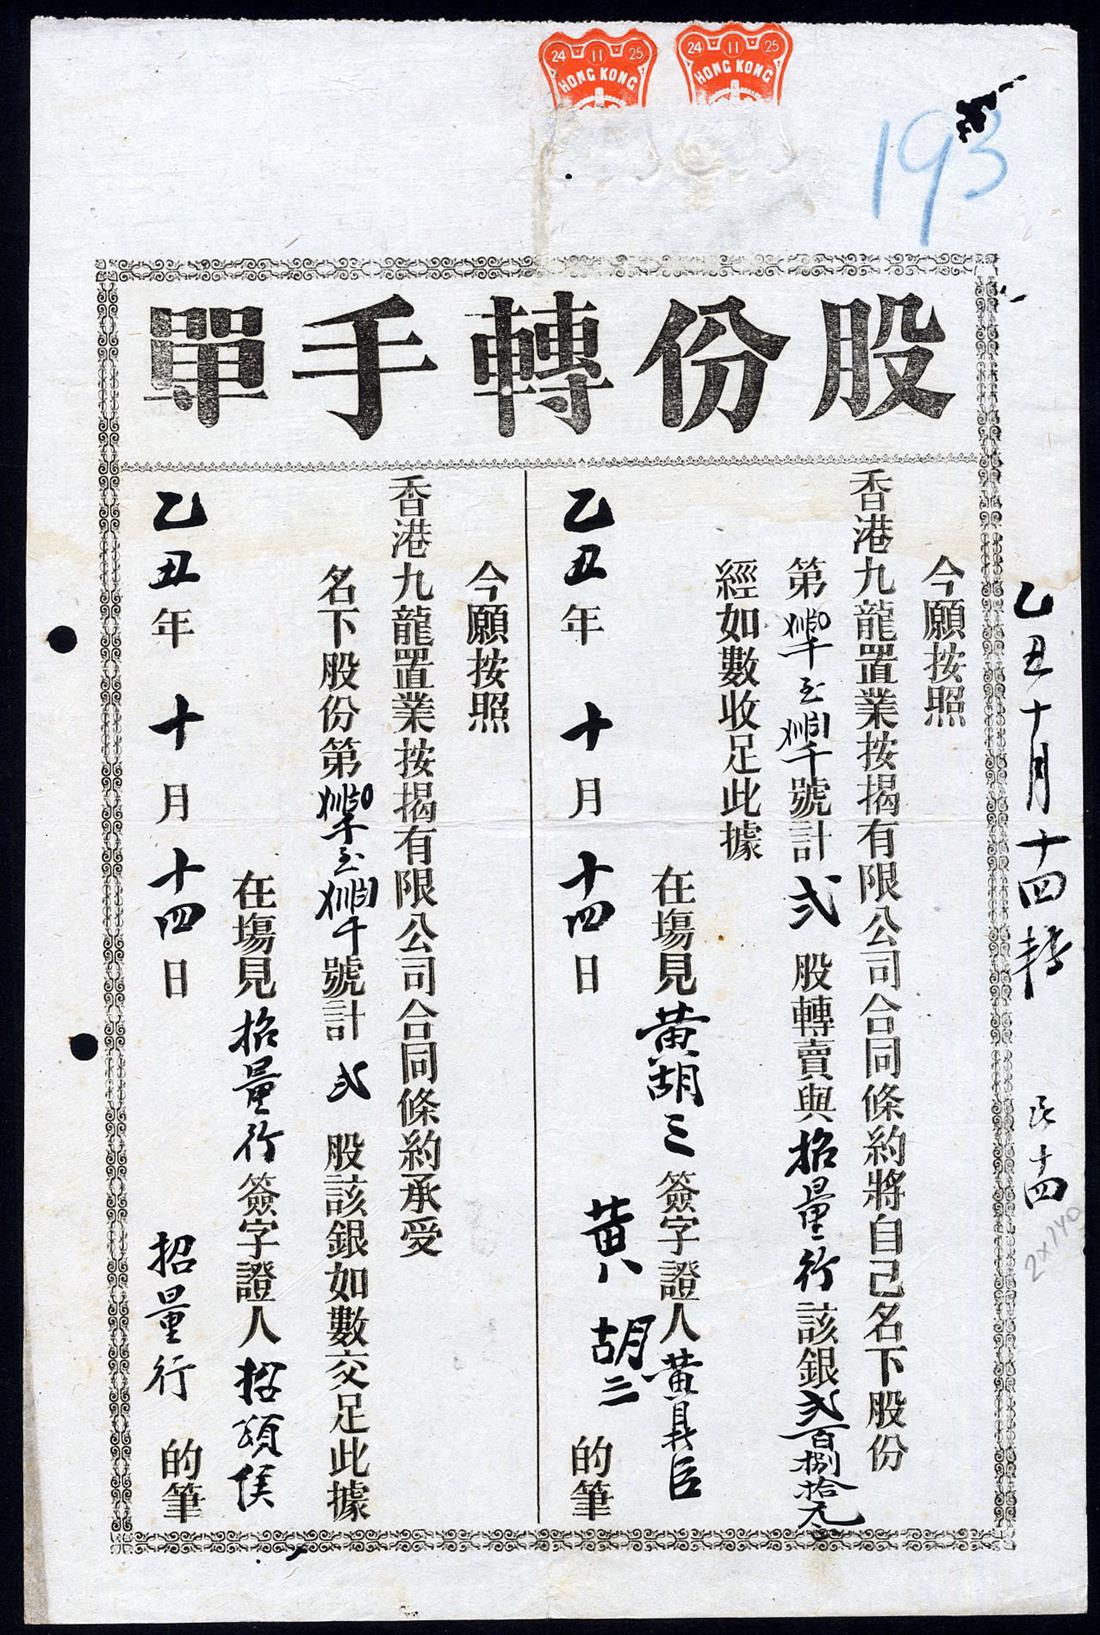 24 11 25
HONG KONG
24 11 25
HONG KONG
193
股份轉手單
乙丑十月十四轉 民十四
2×140
今願按照
香港九龍置業按揭有限公司合同條約將自己名下股份
第 至 號計弍股轉賣與招量行該銀弍百捌拾元
經如數收足此據
在塲見黄胡三簽字證人黄具臣
黄八 胡三 的筆
乙丑年十月十四日
今願按照
香港九龍置業按揭有限公司合同條約承受
名下股份第 至 號計弍股該銀如數交足此據
在塲見招量行簽字證人招頌侯
乙丑年十月十四日 招量行 的筆